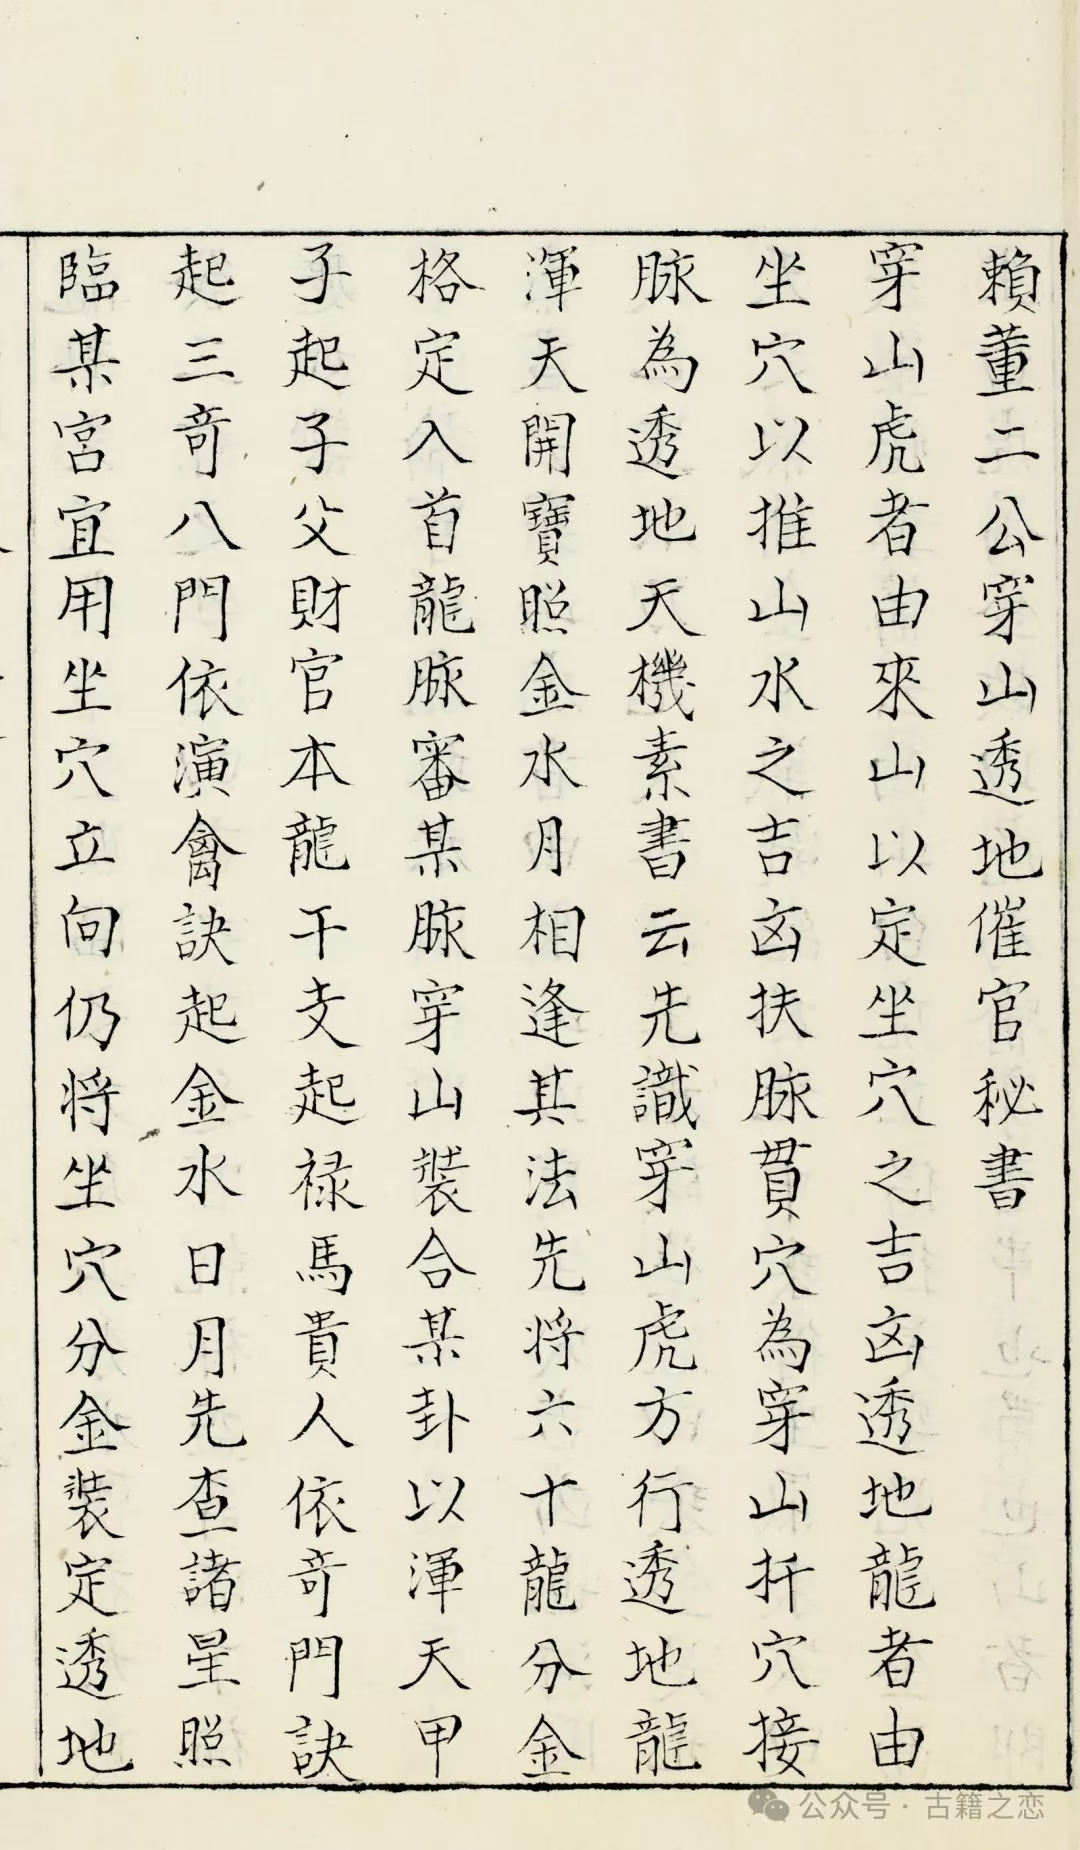 賴董二公穿山透地催官秘書
穿山虎者由來山以定坐穴之吉凶透地龍者由
坐穴以推山水之吉凶扶脉貫穴為穿山扦穴接
脉為透地天機素書云先識穿山虎方行透地龍
渾天開寶照金水月相逢其法先将六十龍分金
格定入首龍脉審某脉穿山裝合某卦以渾天甲
子起子父財官本龍干支起禄馬貴人依竒門訣
起三竒八門依演禽訣起金水日月先查諸星照
臨某宮宜用坐穴立向仍将坐穴分金裝定透地
公众号·古籍之恋